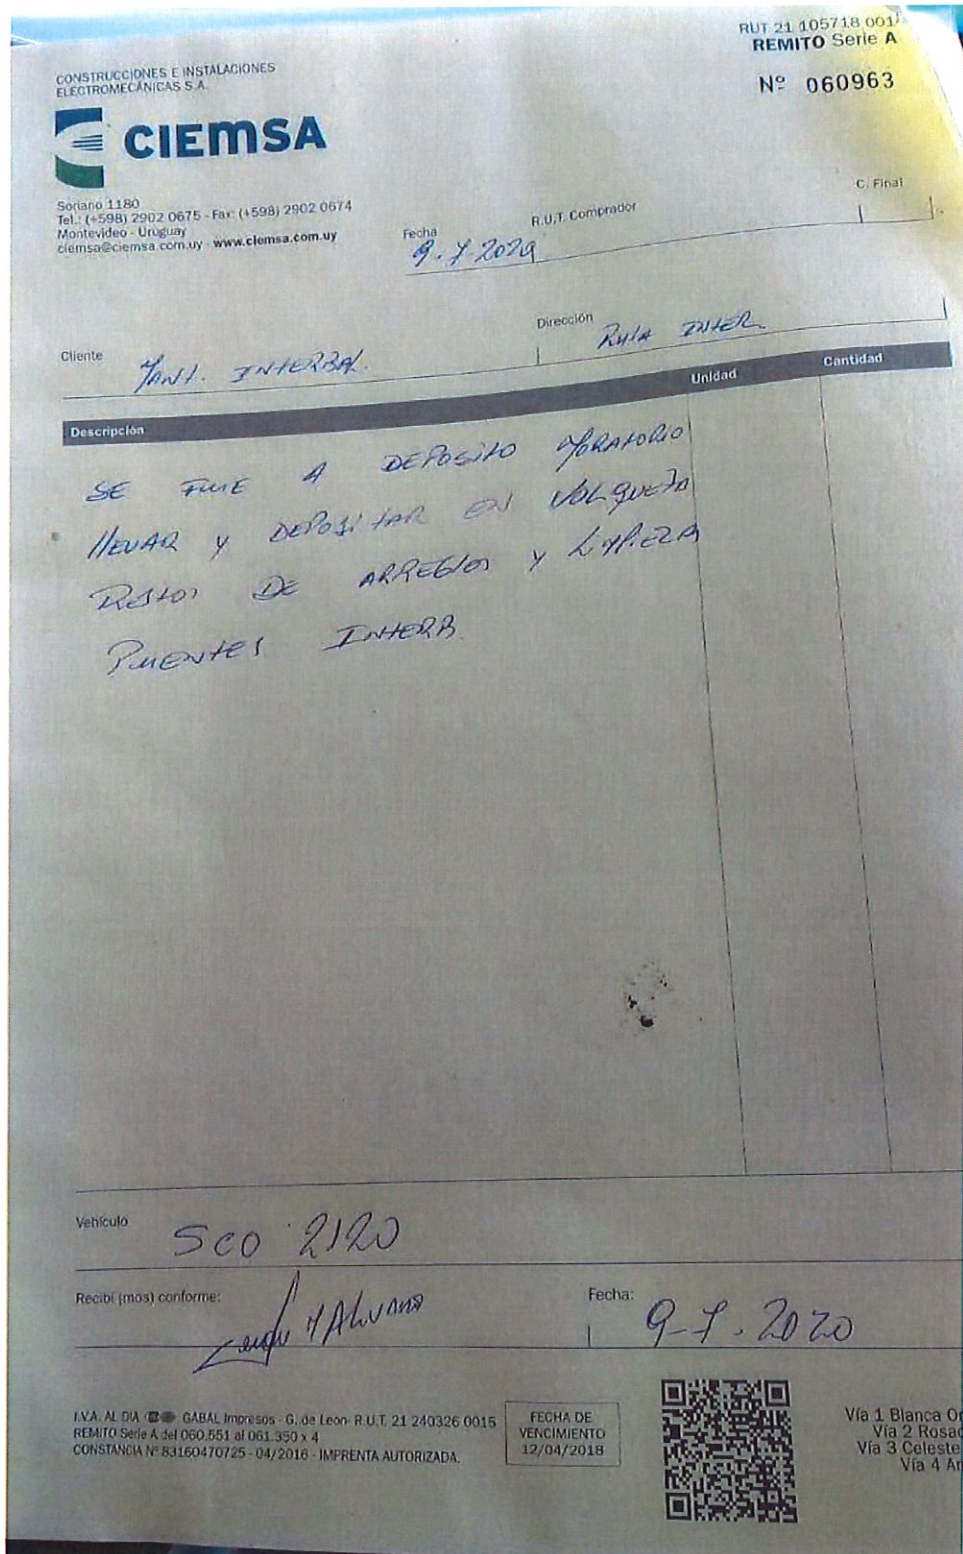 RUT 21 105718 001
REMITO Serie A
Nº 060963
CONSTRUCCIONES E INSTALACIONES
ELECTROMECÁNICAS S.A.
CIEMSA
Soriano 1180
Tel.: (+598) 2902 0675 - Fax: (+598) 2902 0674
Montevideo - Uruguay
ciemsa@ciemsa.com.uy - www.ciemsa.com.uy
Fecha 9.7.2020
R.U.T. Comprador
C. Final
Cliente MANT. INTERBAL.
Dirección RUTA INTER.
Descripción Unidad Cantidad
SE FUE A DEPOSITO MORATORIO
llEVAR y DEPOSITAR EN VOLQUETA
RESTOS DE ARREGLOS y LIMPIEZA
PUENTES INTERB.
Vehículo SCO 2120
Recibí (mos) conforme:
Fecha: 9-7-2020
I.V.A. AL DIA GABAL Impresos - G. de Leon- R.U.T. 21 240326 0015
REMITO Serie A del 060.551 al 061.350 x 4
CONSTANCIA Nº 83160470725 - 04/2016 - IMPRENTA AUTORIZADA.
FECHA DE
VENCIMIENTO
12/04/2018
Vía 1 Blanca Or
Vía 2 Rosad
Vía 3 Celeste
Vía 4 Ar